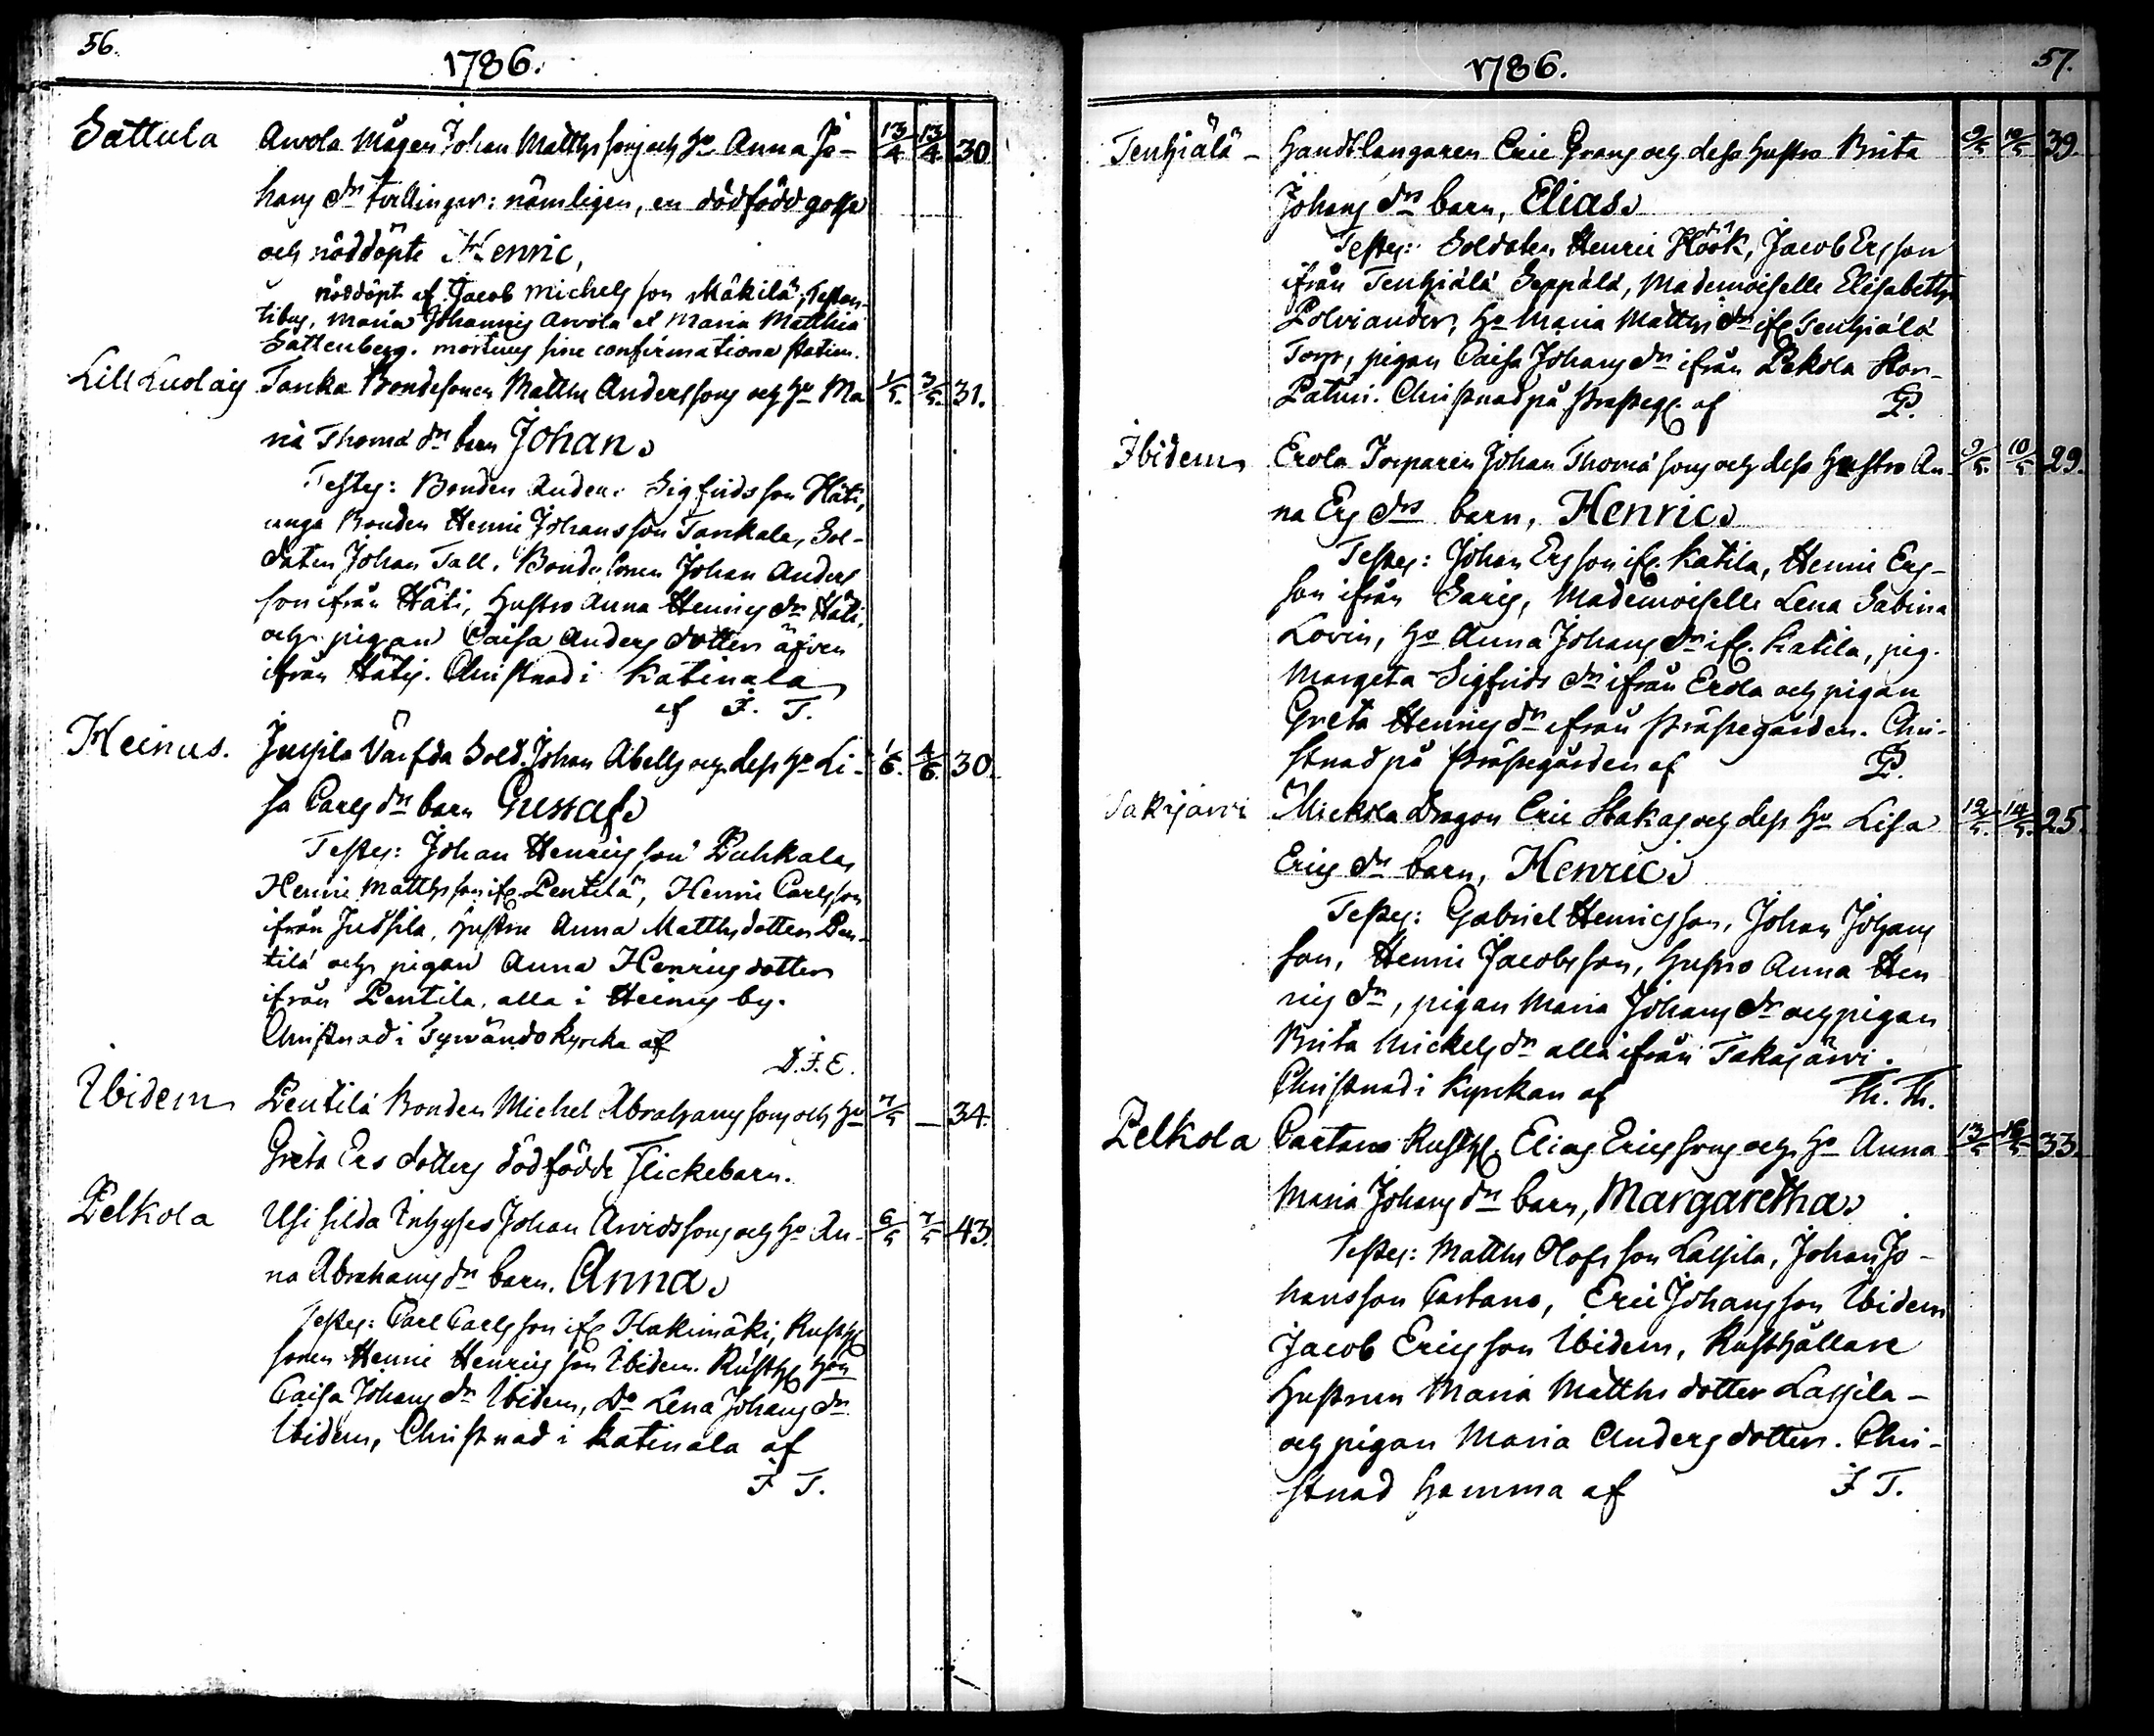 56.
1786.
Sattula Arvola Mågen Johan Matths sons och Ho Anna Jo- 13/4 13/4 30
hans dr tvillingar: nämligen, en dödfödd gosse
och nöddöpte Henric,
nöddöpt af Jacob Michels son Mäkilä, Testan-
tibus, Maria Johannis Arvola et Maria Matthiæ
Sattenberg. mortuus sine confirmatione statim.
Lill Luolais Tanka Bondesonen Matths Anderssons och Ho Ma 1/5. 3/5. 31.
riä Thomæ dr barn Johan.
Testes: Bonden Anders Sigfridsson Häti,
unga Bonden Henric Johansson Tankala, Sol-
daten Johan Tall, Bondesonen Johan Anders
son ifrån Häti, Hustro Anna Henrics dr Häti,
och pigan Caisa Anders dotter äfven
ifrån Hätis. Christnad i Katinala
af F. T.
Heinus. Jussila Värfda Sold. Johan Abells och dess Ho Li- 1/6. 4/6 30.
sa Carls dr barn Gustaf.
Testes: Johan Henrics son Puhkala,
Henric Matths son ifr. Pentilä, Henric Carlsson
ifrån Jussila, Hustru Anna Matths dotter Pen-
tilä och pigan Anna Henrics dotter
ifrån Pentila, alla i Heinus by.
Christnad i Tyrvändö kyrcka af
D.F.E.
Ibidem Pentilä Bonden Michel Abrahams sons och Ho 7/5 — 34.
Greta Ers dotters dödfödde Flickebarn.
Pelkola Usi silda Inhyses Johan Arvids sons och Ho An- 6/5 7/5 43.
na Abrahams dr barn. Anna.
Testes: Carl Carls son ifr Hakimäki, Rusth
sonen Henric Henrics son Ibidem. Rusth Hon
Caisa Johans dr Ibidem, Do Lena Johans dr
Ibidem, Christnad i Katinala af
F T.
1786.
57.
Tenhiälä - Handtlangaren Eric Grans och dess Hustro Brita 9/5 10/5 39.
Johans dr barn, Elias.
Testes: Soldaten Henric Höök, Jacob Ersson
ifrån Tenhiälä Seppälä, Mademoiselle Elisabeth
Polviander, Ho Maria Matths dr ifr Tenhiälä
Torp, pigan Caisa Johans dr ifrån Pekola Stor-
Patuni. Christnad på Prästeg. af P.
Ibidem Erola Torparen Johan Thomæ sons och dess Hustro An- 9/5. 10/5 29.
na Ers drs barn, Henric.
Testes: Johan Ersson ifr. Katila, Henric Ers-
son ifrån Saris, Mademoiselle Lena Sabina
Lovin, Ho Anna Johans dr ifr. Katila, pig.
Margeta Sigfrids dr ifrån Erola och pigan
Greta Henrics dr ifrån Prästegården. Chri-
stnad på Prästegården af P.
Takajärvi Mickola Dragon Eric Stakas och dess Ho Lisa 12/5. 14/5. 25.
Erics dr barn, Henric.
Testes: Gabriel Henricsson, Johan Johans
son, Henric Jacobsson, Hustro Anna Hen
rics dr, pigan Maria Johans dr och pigan
Brita Mickels dr alla ifrån Takajärvi.
Christnad i Kyrckan af Th. Th.
Pelkola Cartano Rusth. Elias Erics sons och Ho Anna 13/5 16/5 33.
Maria Johans dr barn, Margaretha.
Testes: Matths Olofs son Lassila, Johan Jo-
hansson Cartano, Eric Johans son Ibidem
Jacob Erics son Ibidem, Rusthållare
Hustrun Maria Matths dotter Lassila -
och pigan Maria Anders dotter. Chri-
stnad hemma af F T.